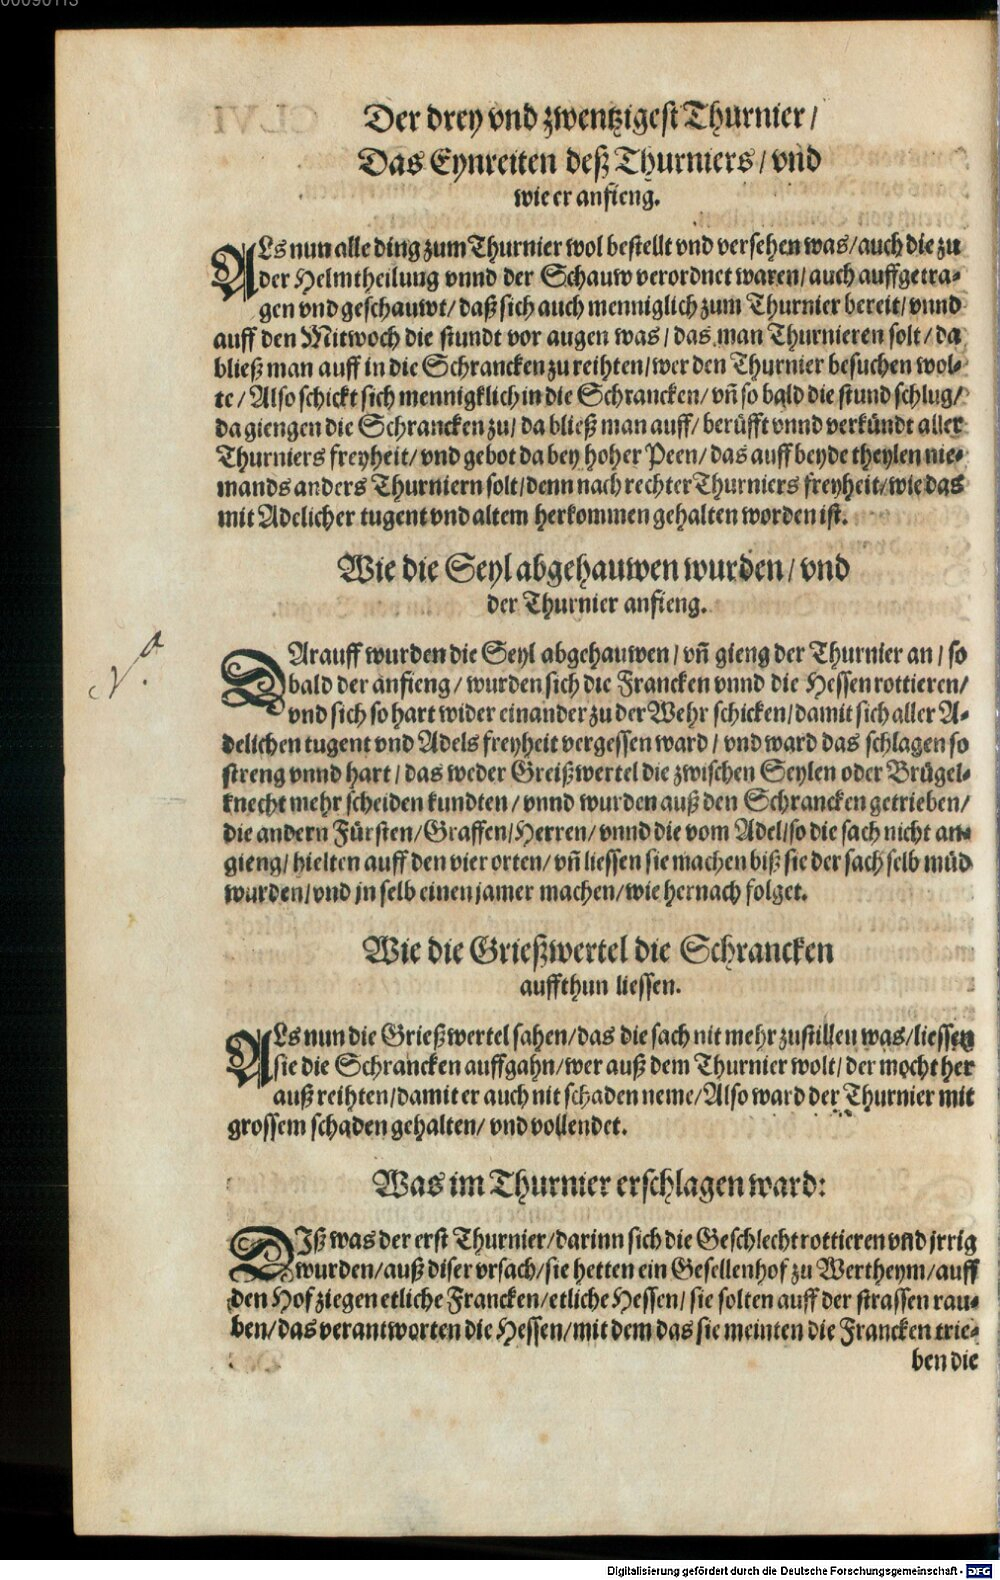 Der drey vnd zwentzigest Thurnier /
Das Eynreiten deß Thurniers / vnd
wie er anfieng.
ALs nun alle ding zum Thurnier wol bestellt vnd versehen was / auch die zu
der Helmtheilung vnnd der Schauw verordnet waren / auch auffgetra-
gen vnd geschauwt / daß sich auch menniglich zum Thurnier bereit / vnnd
auff den Mitwoch die stundt vor augen was / das man Thurnieren solt / da
bließ man auff in die Schrancken zu reihten / wer den Thurnier besuchen wol-
te / Also schickt sich mennigklich in die Schrancken / vñ so bald die stund schlug /
da giengen die Schrancken zu / da bließ man auff / berüfft vnnd verkündt aller
Thurniers freyheit / vnd gebot da bey hoher Peen / das auff beyde theylen nie-
mands anders Thurniern solt / denn nach rechter Thurniers freyheit / wie das
mit Adelicher tugent vnd altem herkommen gehalten worden ist.
Wie die Seyl abgehauwen wurden / vnd
der Thurnier anfieng.
DArauff wurden die Seyl abgehauwen / vñ gieng der Thurnier an / so
bald der anfieng / wurden sich die Francken vnnd die Hessen rottieren /
vnd sich so hart wider einander zu der Wehr schicken / damit sich aller A-
delichen tugent vnd Adels freyheit vergessen ward / vnd ward das schlagen so
streng vnnd hart / das weder Greißwertel die zwischen Seylen oder Brügel-
knecht mehr scheiden kundten / vnnd wurden auß den Schrancken getrieben /
die andern Fürsten / Graffen / Herren / vnnd die vom Adel / so die sach nicht an-
gieng / hielten auff den vier orten / vñ liessen sie machen biß sie der sach selb müd
wurden / vnd jn selb einen jamer machen / wie hernach folget.
Wie die Grießwertel die Schrancken
auffthun liessen.
ALs nun die Grießwertel sahen / das die sach nit mehr zustillen was / liessen
sie die Schrancken auffgahn / wer auß dem Thurnier wolt / der mocht her
auß reihten / damit er auch nit schaden neme / Also ward der Thurnier mit
grossem schaden gehalten / vnd vollendet.
Was im Thurnier erschlagen ward:
DIß was der erst Thurnier / darinn sich die Geschlecht rottieren vnd jrrig
wurden / auß diser vrsach / sie hetten ein Gesellenhof zu Wertheym / auff
den Hof ziegen etliche Francken / etliche Hessen / sie solten auff der strassen rau-
ben / das verantworten die Hessen / mit dem das sie meinten die Francken trie-
ben die
Digitalisierung gefördert durch die Deutsche Forschungsgemeinschaft - DFG